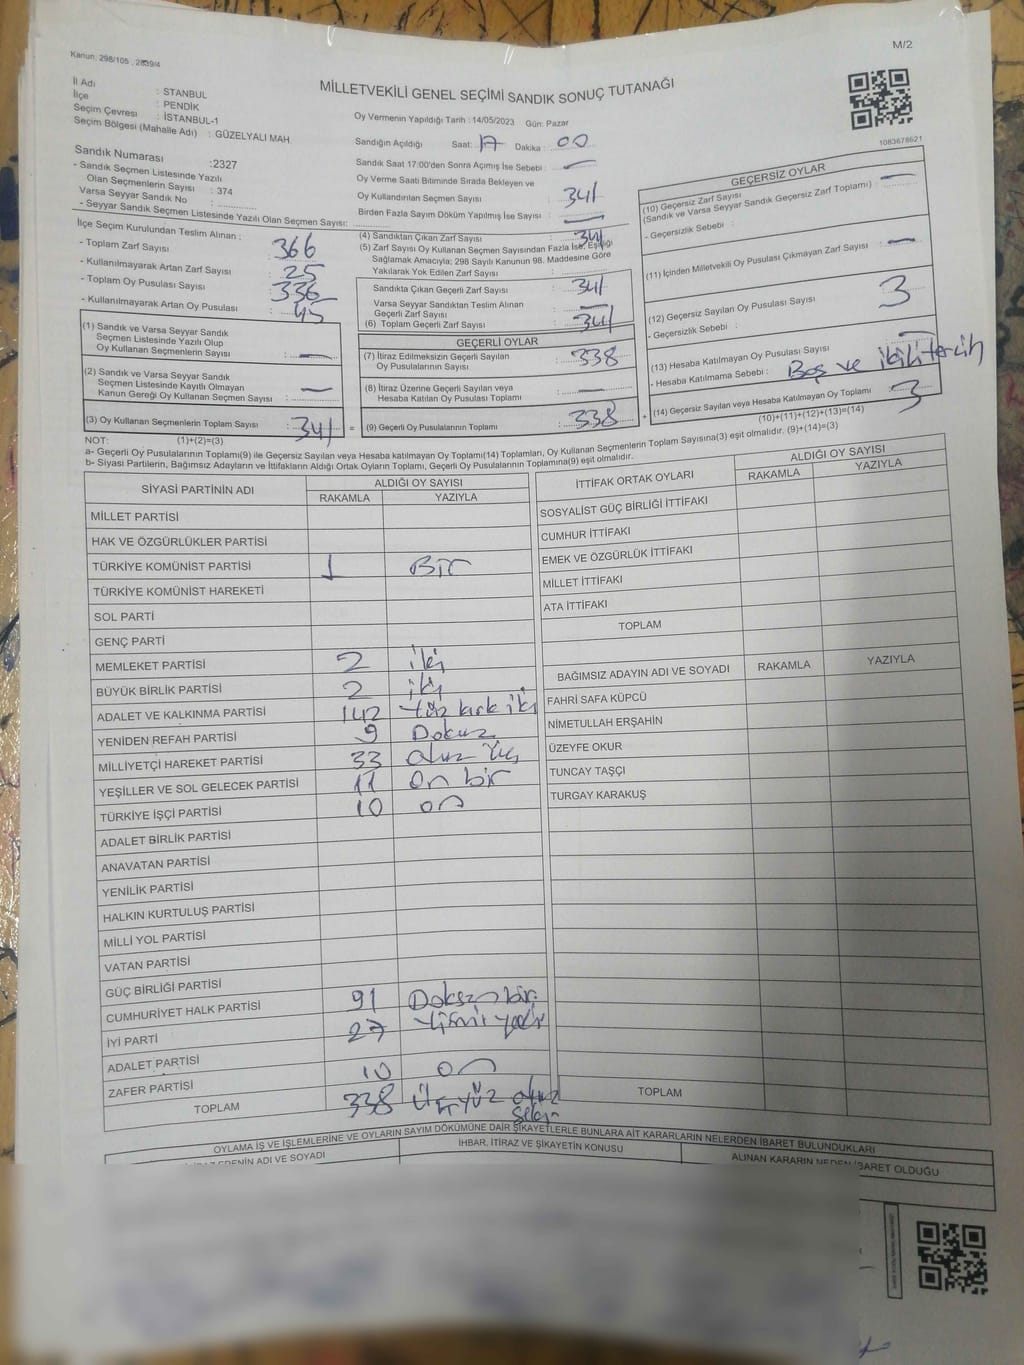 M/2
Kanun: 298/105 , 2839/4
MİLLETVEKİLİ GENEL SEÇİMİ SANDIK SONUÇ TUTANAĞI
İl Adı : STANBUL
İlçe : PENDİK
Seçim Çevresi : İSTANBUL-1
Seçim Bölgesi (Mahalle Adı) : GÜZELYALI MAH
Sandık Numarası :2327
- Sandık Seçmen Listesinde Yazılı
Olan Seçmenlerin Sayısı : 374
Varsa Seyyar Sandık No :
- Seyyar Sandık Seçmen Listesinde Yazılı Olan Seçmen Sayısı:
İlçe Seçim Kurulundan Teslim Alınan :
- Toplam Zarf Sayısı 366
- Kullanılmayarak Artan Zarf Sayısı : 25
- Toplam Oy Pusulası Sayısı : 336
- Kullanılmayarak Artan Oy Pusulası : 45
(1) Sandık ve Varsa Seyyar Sandık
Seçmen Listesinde Yazılı Olup
Oy Kullanan Seçmenlerin Sayısı : —
(2) Sandık ve Varsa Seyyar Sandık
Seçmen Listesinde Kayıtlı Olmayan
Kanun Gereği Oy Kullanan Seçmen Sayısı : —
(3) Oy Kullanan Seçmenlerin Toplam Sayısı : 341 =
Oy Vermenin Yapıldığı Tarih : 14/05/2023 Gün: Pazar
Sandığın Açıldığı Saat: 17 Dakika : 00
Sandık Saat 17:00'den Sonra Açımış İse Sebebi : —
Oy Verme Saati Bitiminde Sırada Bekleyen ve
Oy Kullandırılan Seçmen Sayısı : 341
Birden Fazla Sayım Döküm Yapılmış İse Sayısı : —
(4) Sandıktan Çıkan Zarf Sayısı : 341
(5) Zarf Sayısı Oy Kullanan Seçmen Sayısından Fazla İse, Eşitliği
Sağlamak Amacıyla; 298 Sayılı Kanunun 98. Maddesine Göre
Yakılarak Yok Edilen Zarf Sayısı :
Sandıkta Çıkan Geçerli Zarf Sayısı : 341
Varsa Seyyar Sandıktan Teslim Alınan
Geçerli Zarf Sayısı : —
(6) Toplam Geçerli Zarf Sayısı : 341
GEÇERLİ OYLAR
(7) İtiraz Edilmeksizin Geçerli Sayılan
Oy Pusulalarının Sayısı : 338
(8) İtiraz Üzerine Geçerli Sayılan veya
Hesaba Katılan Oy Pusulası Toplamı : —
(9) Geçerli Oy Pusulalarının Toplamı : 338 +
1083678621
GEÇERSİZ OYLAR
(10) Geçersiz Zarf Sayısı : —
(Sandık ve Varsa Seyyar Sandık Geçersiz Zarf Toplamı)
- Geçersizlik Sebebi :
(11) İçinden Milletvekili Oy Pusulası Çıkmayan Zarf Sayısı : —
(12) Geçersiz Sayılan Oy Pusulası Sayısı : 3
- Geçersizlik Sebebi :
(13) Hesaba Katılmayan Oy Pusulası Sayısı : —
- Hesaba Katılmama Sebebi : Boş ve ikili tercih
(14) Geçersiz Sayılan veya Hesaba Katılmayan Oy Toplamı : 3
(10)+(11)+(12)+(13)=(14)
NOT: (1)+(2)=(3)
a- Geçerli Oy Pusulalarının Toplamı(9) ile Geçersiz Sayılan veya Hesaba katılmayan Oy Toplamı(14) Toplamları, Oy Kullanan Seçmenlerin Toplam Sayısına(3) eşit olmalıdır. (9)+(14)=(3)
b- Siyasi Partilerin, Bağımsız Adayların ve İttifakların Aldığı Ortak Oyların Toplamı, Geçerli Oy Pusulalarının Toplamına(9) eşit olmalıdır.
SİYASİ PARTİNİN ADI ALDIĞI OY SAYISI
RAKAMLA YAZIYLA
MİLLET PARTİSİ
HAK VE ÖZGÜRLÜKLER PARTİSİ
TÜRKİYE KOMÜNİST PARTİSİ 1 Bir
TÜRKİYE KOMÜNİST HAREKETİ
SOL PARTİ
GENÇ PARTİ
MEMLEKET PARTİSİ 2 iki
BÜYÜK BİRLİK PARTİSİ 2 iki
ADALET VE KALKINMA PARTİSİ 142 Yüz kırk iki
YENİDEN REFAH PARTİSİ 9 Dokuz
MİLLİYETÇİ HAREKET PARTİSİ 33 otuz üç
YEŞİLLER VE SOL GELECEK PARTİSİ 11 On bir
TÜRKİYE İŞÇİ PARTİSİ 10 on
ADALET BİRLİK PARTİSİ
ANAVATAN PARTİSİ
YENİLİK PARTİSİ
HALKIN KURTULUŞ PARTİSİ
MİLLİ YOL PARTİSİ
VATAN PARTİSİ
GÜÇ BİRLİĞİ PARTİSİ
CUMHURİYET HALK PARTİSİ 91 Doksan bir
İYİ PARTİ 27 Yirmi yedi
ADALET PARTİSİ
ZAFER PARTİSİ 10 on
TOPLAM 338 Üç yüz otuz sekiz
İTTİFAK ORTAK OYLARI ALDIĞI OY SAYISI
RAKAMLA YAZIYLA
SOSYALİST GÜÇ BİRLİĞİ İTTİFAKI
CUMHUR İTTİFAKI
EMEK VE ÖZGÜRLÜK İTTİFAKI
MİLLET İTTİFAKI
ATA İTTİFAKI
TOPLAM
BAĞIMSIZ ADAYIN ADI VE SOYADI RAKAMLA YAZIYLA
FAHRİ SAFA KÜPCÜ
NİMETULLAH ERŞAHİN
ÜZEYFE OKUR
TUNCAY TAŞÇI
TURGAY KARAKUŞ
TOPLAM
OYLAMA İŞ VE İŞLEMLERİNE VE OYLARIN SAYIM DÖKÜMÜNE DAİR ŞİKAYETLERLE BUNLARA AİT KARARLARIN NELERDEN İBARET BULUNDUKLARI
EDENİN ADI VE SOYADI İHBAR, İTİRAZ VE ŞİKAYETİN KONUSU ALINAN KARARIN NEDEN İBARET OLDUĞU